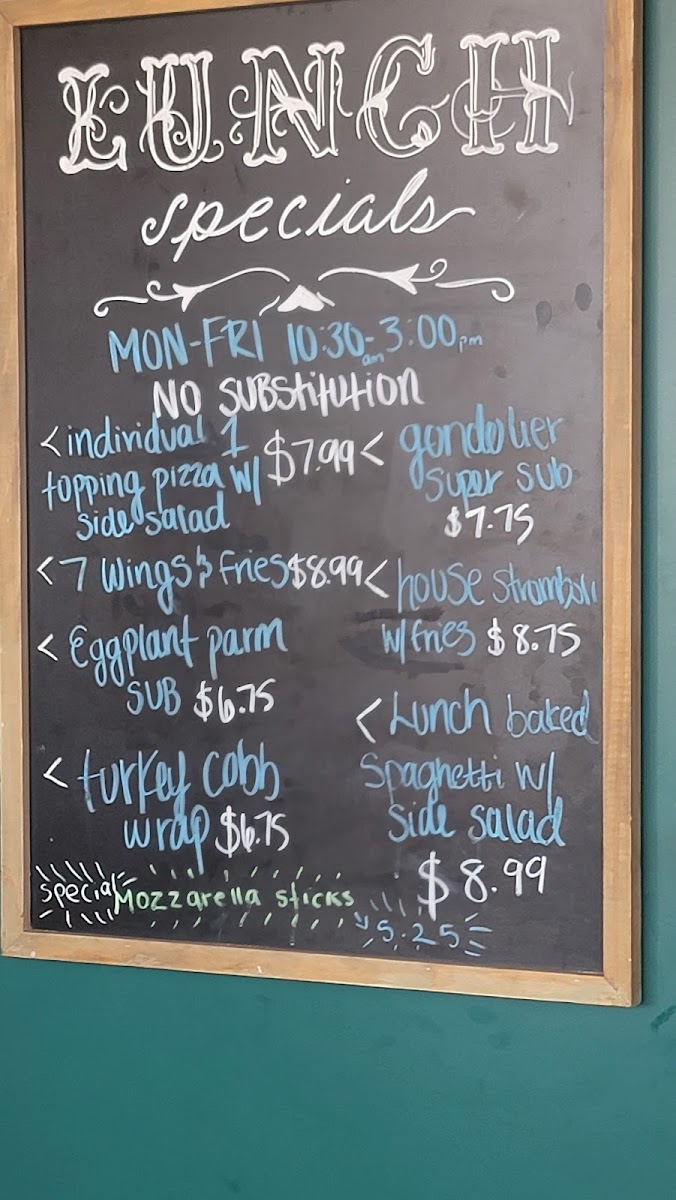 LUNCH
specials
MON-FRI 10:30am-3:00pm
NO SUBStitUtION
< individual 1
topping pizza w/
side salad
$7.99
< 7 wings & fries $8.99
< Eggplant parm
SUB $6.75
< turkey cobb
wrap $6.75
< gondolier
super sub
$7.75
< house stromboli
w/fries $8.75
< Lunch baked
Spaghetti w/
side salad
$8.99
special Mozzarella sticks
5.25